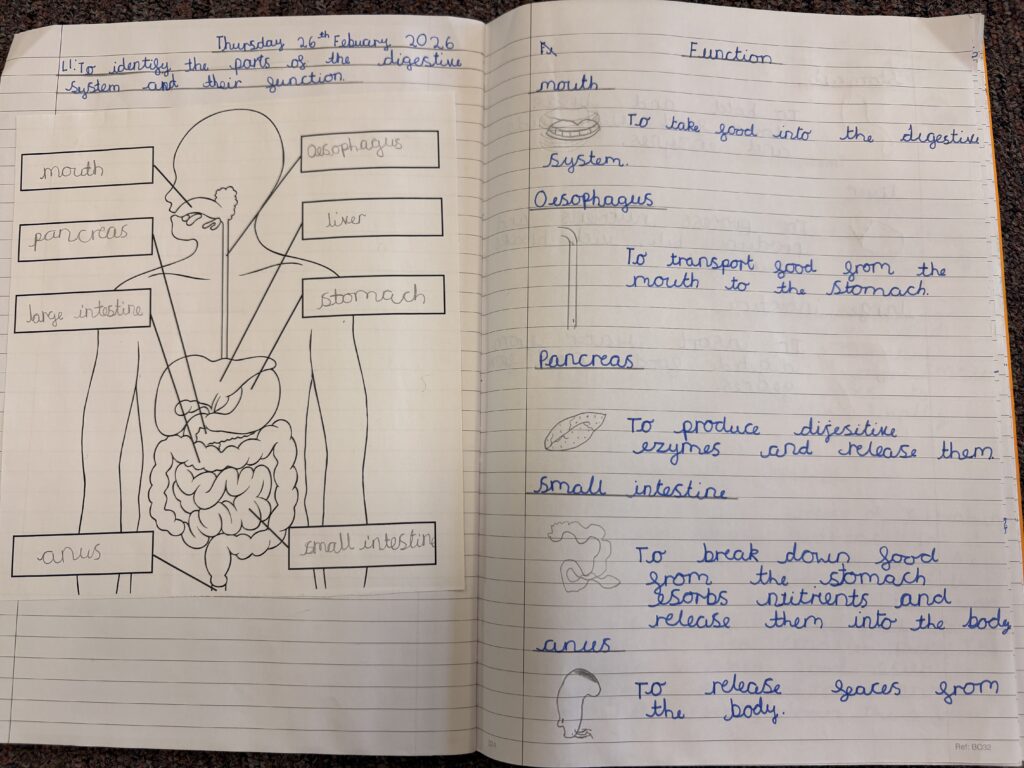 Thursday 26th Febuary 2026
LI: To identify the parts of the digestive
system and their function
mouth
Oesophagus
pancreas
liver
large intestine
stomach
anus
small intestine
Function
mouth
To take food into the digestive
system.
Oesophagus
To transport food from the
mouth to the stomach.
Pancreas
To produce difesitive
ezymes and release them
small intestine
To break down food
from the stomach
esorbs ntitrients and
release them into the body
anus
To release feaces from
the body.
Ref: BC32